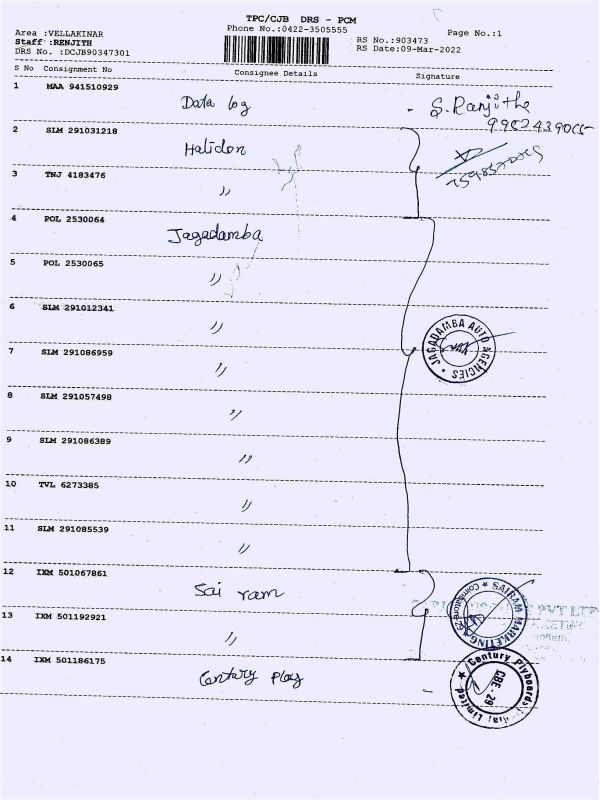 TPC/CJB DRS - PCM
Phone No.:0422-3505555
Page No.:1
Area :VELLAKINAR
Staff :RENJITH
DRS No. :DCJB90347301
RS No.:903473
RS Date:09-Mar-2022
S No Consignment No Consignee Details Signature
1 MAA 941510929
Data log - S. Ranjithe
2 SLM 291031218
Haliden
3 TNJ 4183476
〃
4 POL 2530064
Jagadamba
5 POL 2530065
〃
6 SLM 291012341
〃
JAGADAMBA AUTO AGENCIES
7 SLM 291086959
〃
8 SLM 291057498
〃
9 SLM 291086389
〃
10 TVL 6273385
〃
11 SLM 291085539
〃
12 IXM 501067861
Sai ram
SAIRAM MARKETING ★ Coimbatore
PVT LTD
13 IXM 501192921
〃
14 IXM 501186175
Century Play
Century Plyboards (India) Limited
CBE - 29